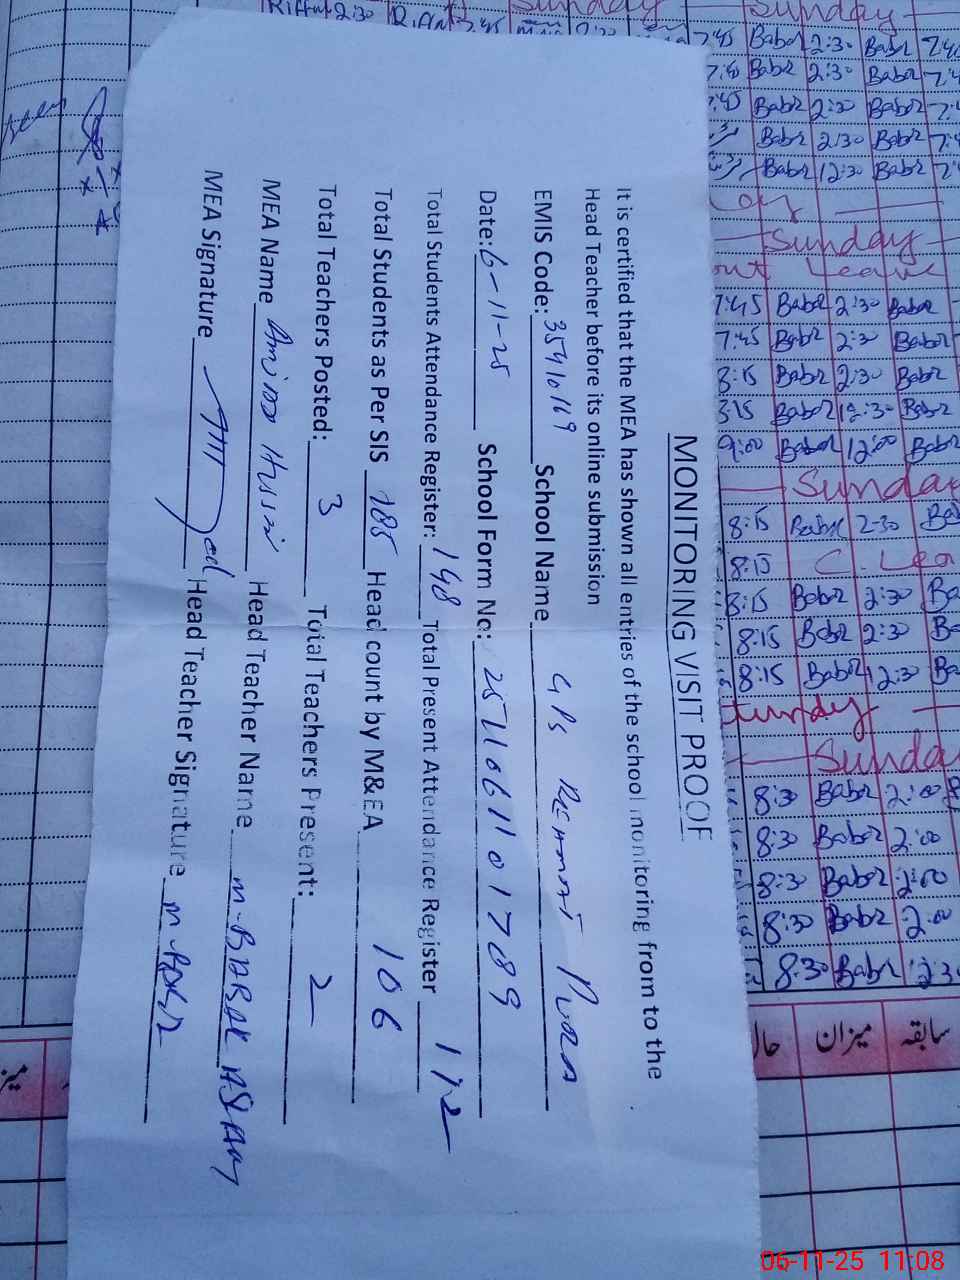 MONITORING VISIT PROOF
It is certified that the MEA has shown all entries of the school monitoring from to the
Head Teacher before its online submission
EMIS Code: 35410169 School Name GPS Rehmat Pura
Date: 6-11-25 School Form No: 2511061101789
Total Students Attendance Register: 148 Total Present Attendance Register 112
Total Students as Per SIS 185 Head count by M&EA 106
Total Teachers Posted: 3 Total Teachers Present: 2
MEA Name Husin Head Teacher Name M-BABAR ASLAM
MEA Signature Head Teacher Signature M-Babr
Sunday Sunday
Riffat 2:30 Riffat 7:45
7:45 Babar 2:30 Babr
7:45 Babr 2:30 Babr
7:45 Babr 2:30 Babr
Babr 2:30 Babr
Babr 12:30 Babr
Sunday
Leave
7:45 Babar 2:30 Babar
7:45 Babr 2:30 Babr
8:15 Babar 2:30 Babr
Babar 12:30 Babr
9:00 Babar 12:00 Babr
Sunday
8:15 Babar 2:30
8:15 C. Lea
8:15 Babar 2:30 Ba
8:15 Babar 2:30
8:15 Babar 12:30 Ba
Sunday
8:30 Babar 2:00
8:30 Babar 2:00
8:30 Babar 2:00
8:30 Babar 2:00
8:30 Babar
سابقہ میزان حال
06-11-25 11:08